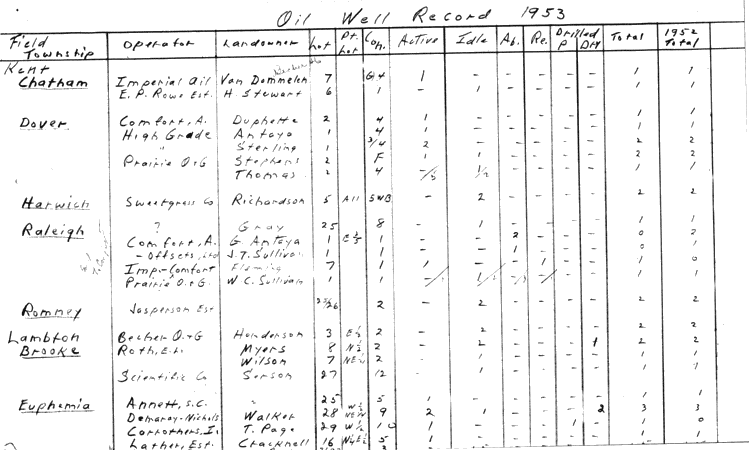 Oil Well Record 1953
Field Township Operator Landowner Lot Pt. Lot Con. Active Idle Ab. Re. Drilled P Dry Total 1952 Total
Kent
Chatham Imperial Oil Van Dommelen 7 G4 1 - - - - - 1 1
E. P. Rowe Est. H. Stewart 6 1 - 1 - - - - 1 1
Dover Comfort, A. Duphette 2 4 1 - - - - - 1 1
High Grade Antaya 1 4 1 - - - - - 1 1
" Sterling 1 3/4 2 - - - - - 2 2
Prairie O+G Stephens 2 F 1 1 - - - - 2 2
Thomas 2 4 - - - - - 1 1
Harwich Sweetgrass Co Richardson 5 All SWB - 2 - - - - 2 2
Raleigh ? Gray 25 8 - 1 - - - - 1 1
Comfort, A. G. Antaya 1 E½ 1 - - 2 - - - 0 2
- Offsets, Ltd J.T. Sullivan 1 1 - - 1 - - - 0 1
Imp.-Comfort Fleming 7 1 1 - - 1 - - 1 0
Prairie O.+G. W C. Sullivan 1 1 - - - 1 1
Romney Jasperson Est 25/26 2 - 2 - - - - 2 2
Lambton Becher O+G Henderson 3 E½ 2 - 2 - - - - 2 2
Brooke Roth, E.H. Myers 8 N½ 2 - 2 - - - 1 2 2
Wilson 7 NE¼ 2 - 1 - - - - 1 1
Scientific Co Serson 27 12 - 1 - - - - 1 1
Euphemia Annett, S.C. " 25 5 1 - - - - - 1 1
Demaray-Nichols Walker 28 9 2 1 - - - 2 3 3
Corrothers, I. T. Page 29 W½ 10 1 - - - 1 - 1 0
Lather, Est. Cracknell 16 5 1 - - - - - 1 1